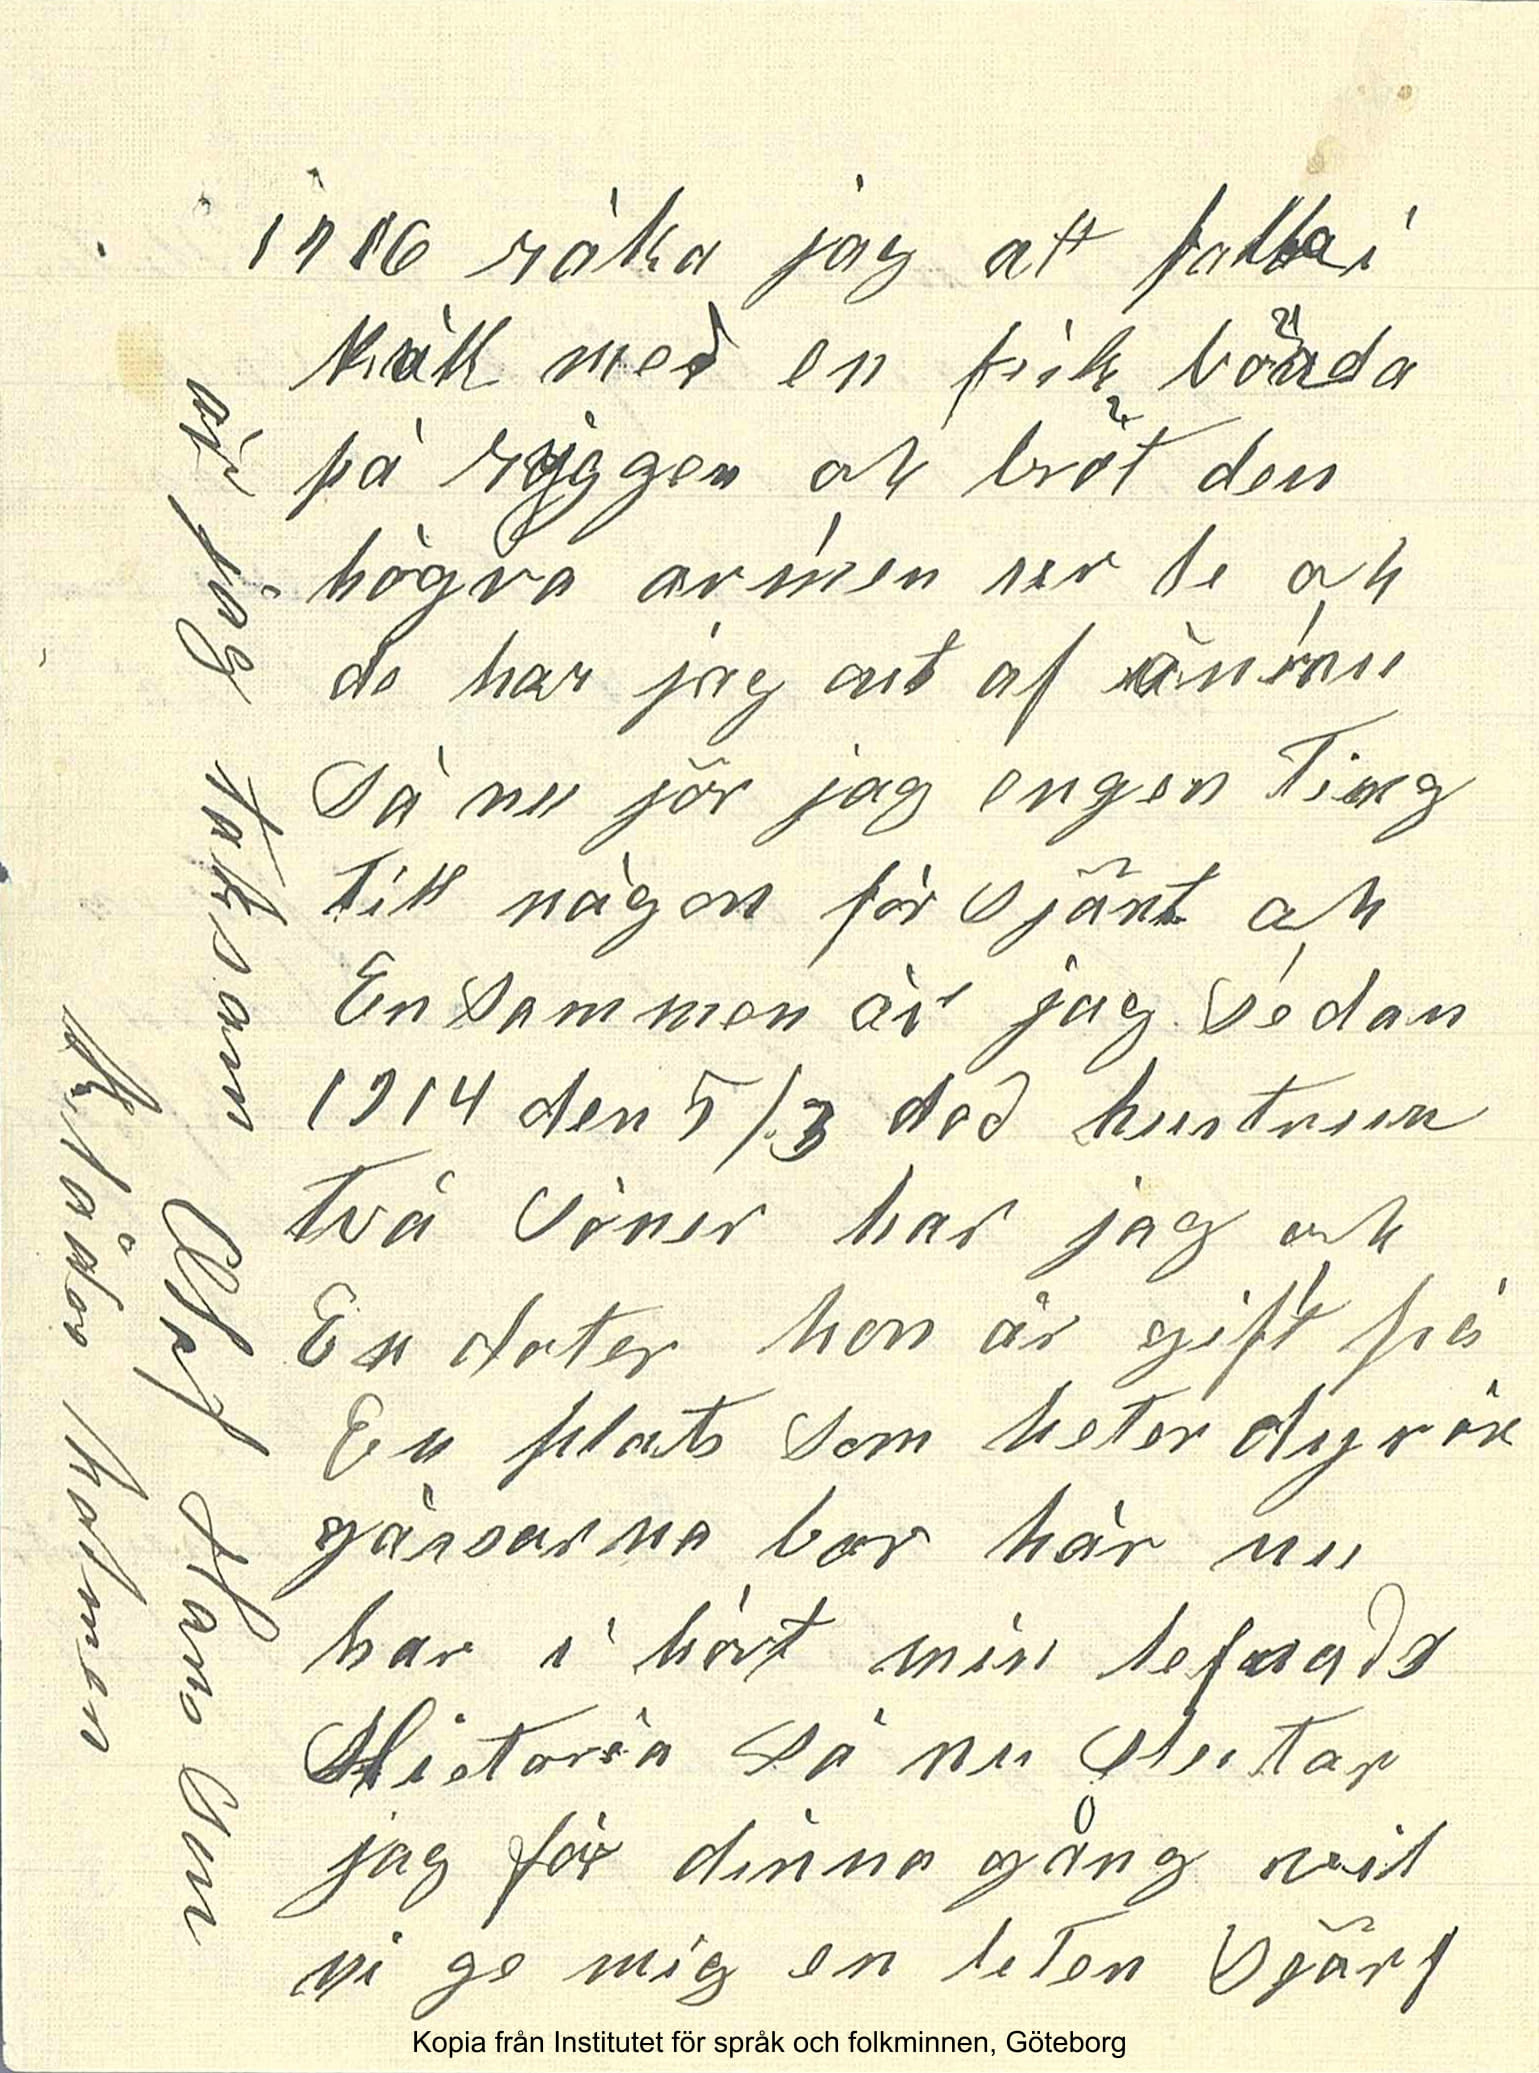 råka jag at falla i
kull med en fisk börda
på ryggen ok bröt den
högra armen ur le ok
de har jag ont af ännu
Så nu jör jag engen Ting
till någon för sjänt ok
Ensammen är jag sedan
1914 den 5/3 dod hustrun
två Söner har jag ok
En doter hon är gift på
En plats som heter dyrön
bor här nu
har i hört min lefnads
Historia Så nu slutar
jag för dinna gång vil
ni ge mig en leten Sjärf
är jag taksam
Olof Hansson
Klådes holmen
Kopia från Institutet för språk och folkminnen, Göteborg